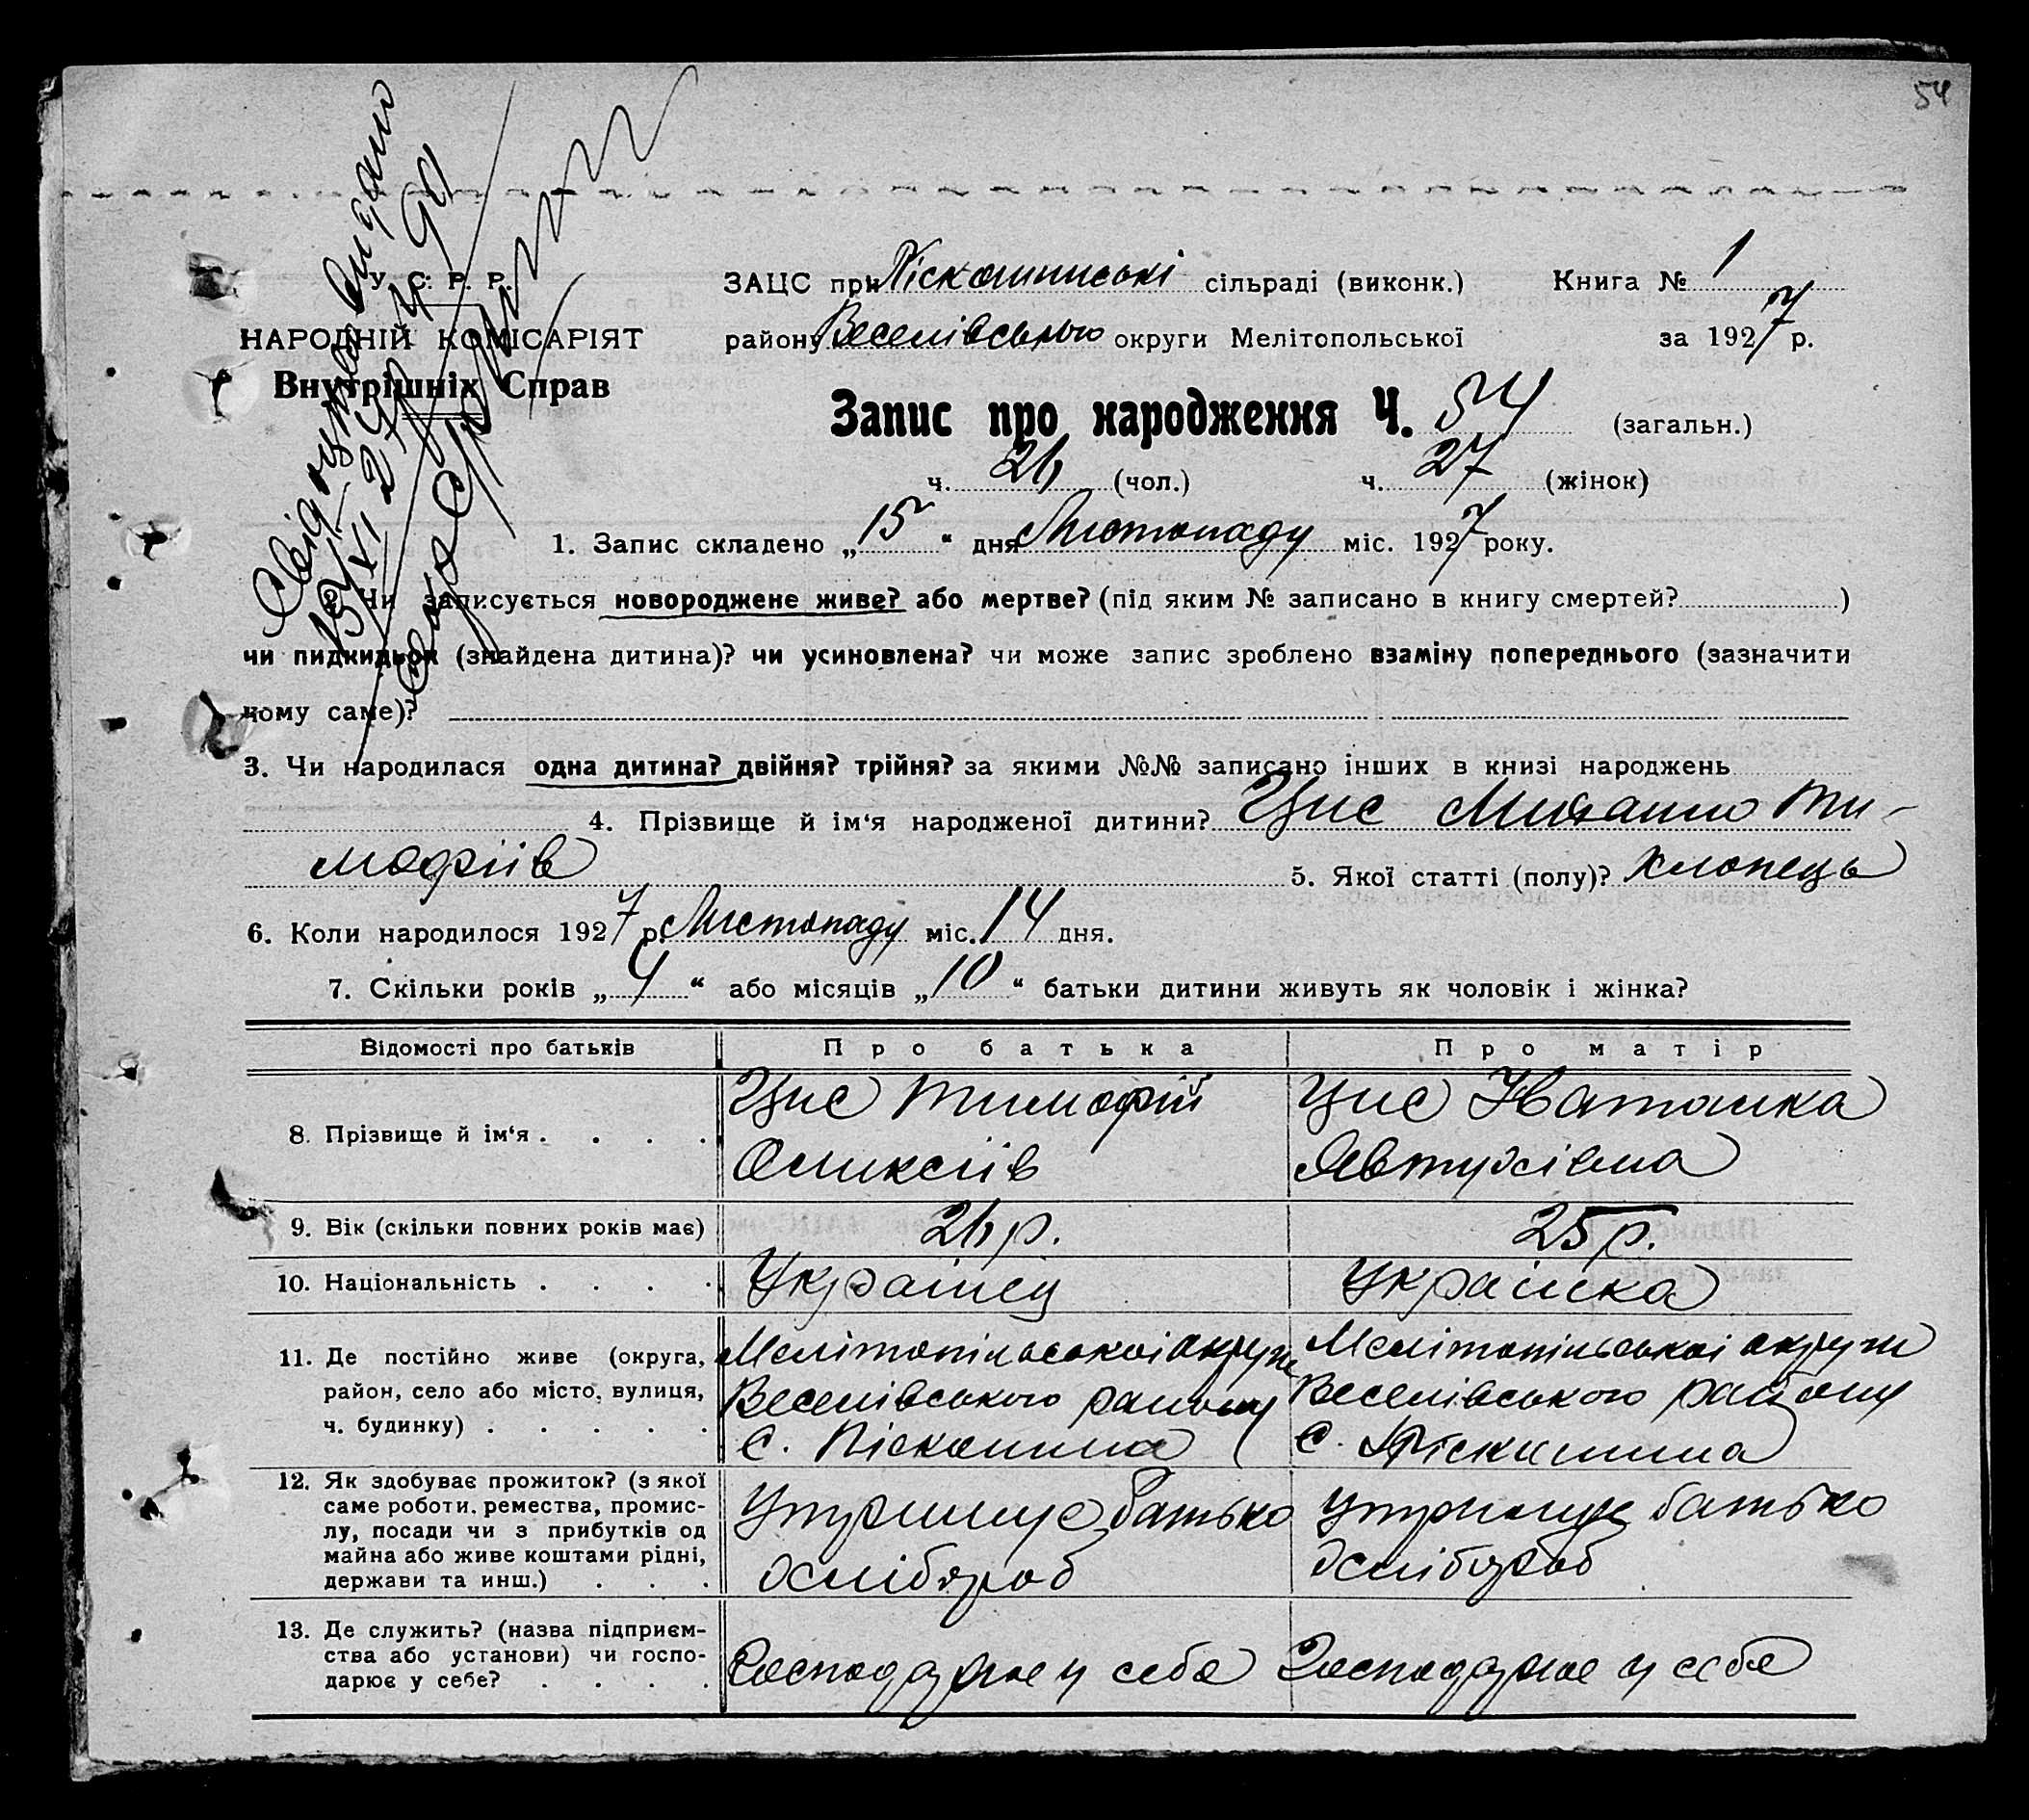 54
Свідоцтво видано
15/XI 27 р. ч 90
У. С. Р. Р.
НАРОДНІЙ КОМІСАРІЯТ
Внутрішніх Справ
ЗАЦС при Піскошинські сільраді (виконк.) Книга № 1
району Веселівського округи Мелітопольської за 1927 р.
Запис про народження Ч. 54 (загальн.)
ч. 26 (чол.) ч. 27 (жінок)
1. Запис складено „15“ дня Листопаду міс. 1927 року.
Чи записується новороджене живе? або мертве? (під яким № записано в книгу смертей? )
чи пидкидьок (знайдена дитина)? чи усиновлена? чи може запис зроблено взаміну попереднього (зазначити
чому саме)?
3. Чи народилася одна дитина? двійня? трійня? за якими №№ записано інших в книзі народжень
4. Прізвище й ім‘я народженої дитини? Цис Михайло Ти-
мофіїв 5. Якої статті (полу)? хлопець
6. Коли народилося 1927 р. Листопаду міс. 14 дня.
7. Скільки років „4“ або місяців „10“ батьки дитини живуть як чоловік і жінка?
Відомості про батьків Про батька Про матір
8. Прізвище й ім‘я . . . . Цис Тимофій Цис Наташка
Оликсіїв Явтухівна
9. Вік (скільки повних років має) 26 р. 25 р.
10. Національність . . . . Українец Українка
11. Де постійно живе (округа, Мелітопільської округи Мелітопільської округи
район, село або місто, вулиця, Веселівського району Веселівського району
ч. будинку) . . . . . с. Піскошина с. Піскошина
12. Як здобуває прожиток? (з якої
саме роботи, ремества, промис- Утримує батько Утримує батько
лу, посади чи з прибутків од
майна або живе коштами рідні, хлібороб хлібороб
держави та инш.) . . .
13. Де служить? (назва підприєм-
ства або установи) чи госпо- Господарює у себе Господарює у себе
дарює у себе? . . . .